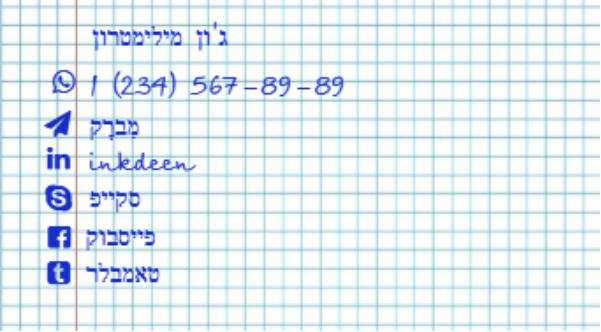 ג'ון מילימטרון
1 (234) 567-89-89
מִברָק
inkdeen
סקייפ
פייסבוק
טאמבלר